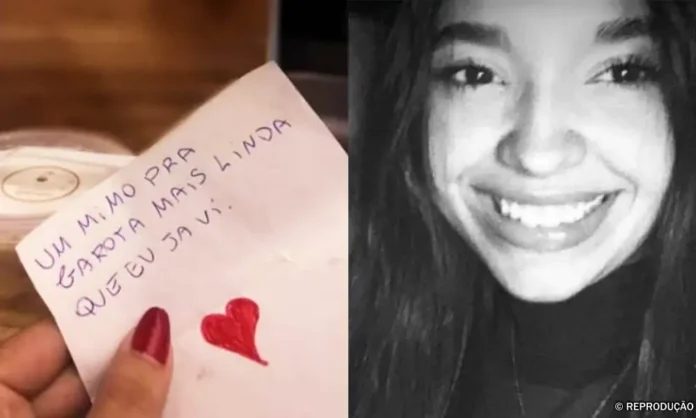 UM MIMO PRA
GAROTA MAIS LINDA
QUE EU JA VI.
© REPRODUÇÃO